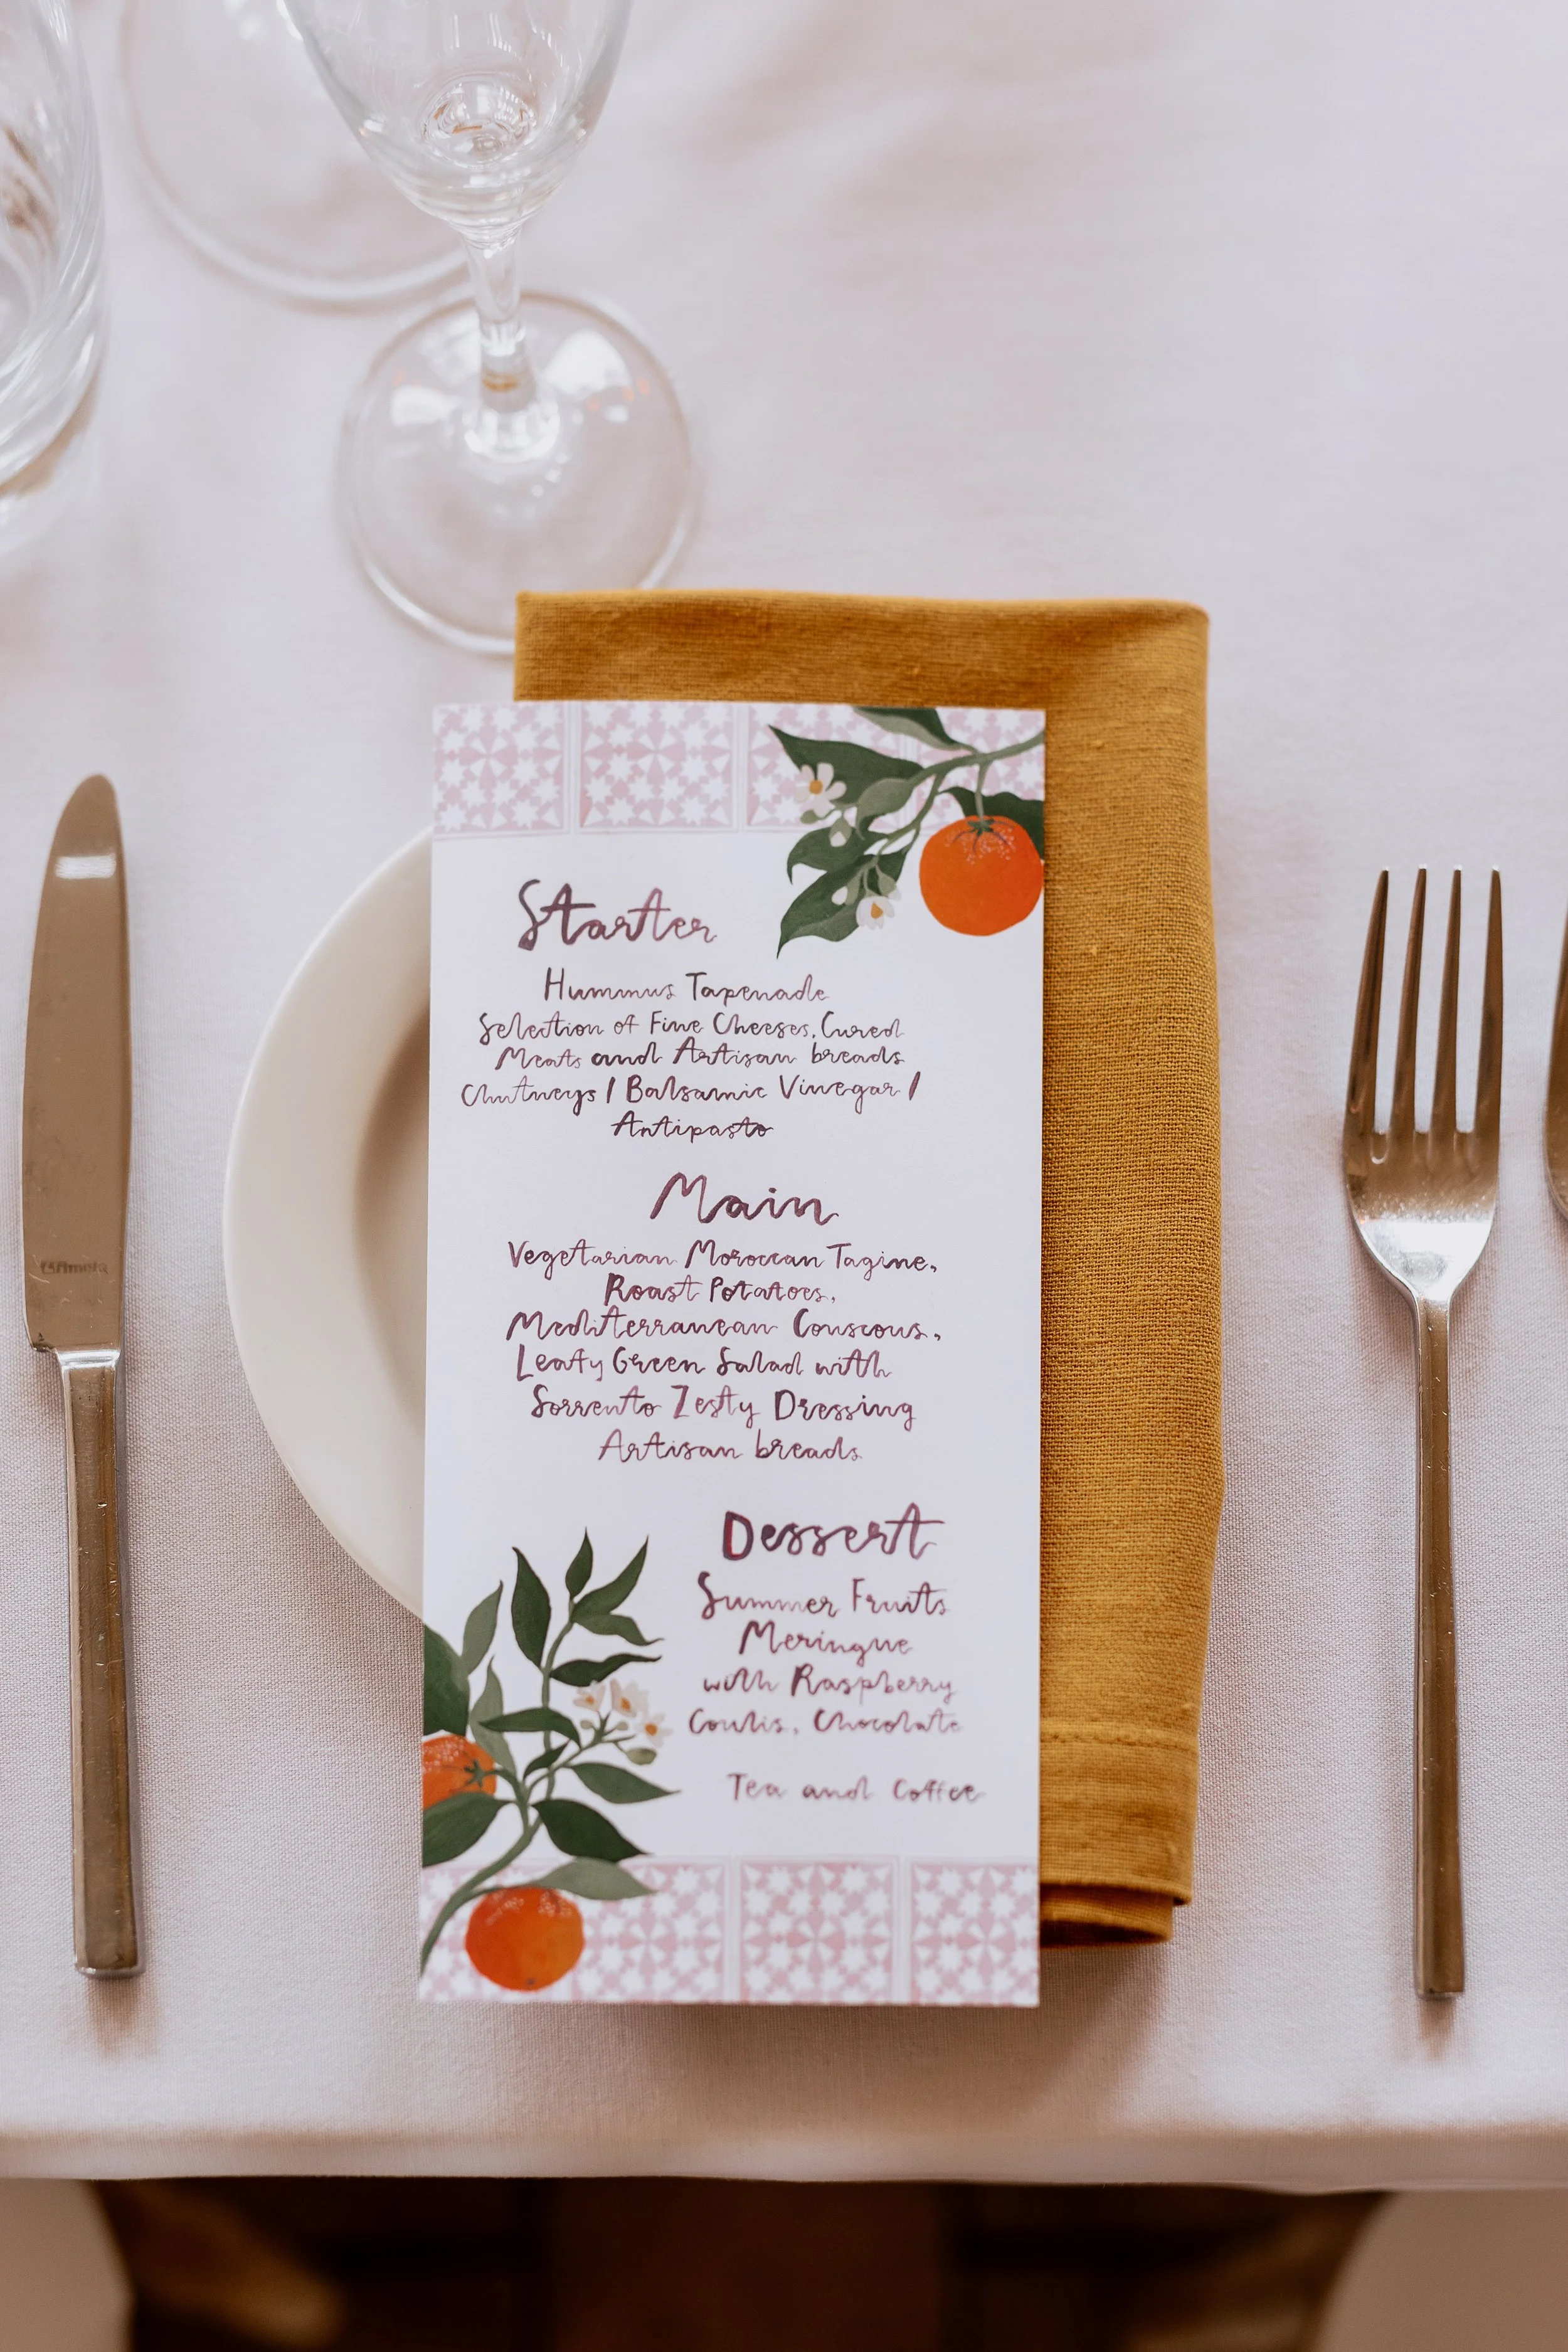 Starter
Hummus Tapenade
Selection of Fine Cheeses, Cured
Meats and Artisan breads
Chutneys / Balsamic Vinegar /
Antipasto
Main
Vegetarian Moroccan Tagine,
Roast Potatoes,
Mediterranean Couscous,
Leafy Green Salad with
Sorrento Zesty Dressing
Artisan breads
Dessert
Summer Fruits
Meringue
with Raspberry
Coulis, Chocolate
Tea and Coffee